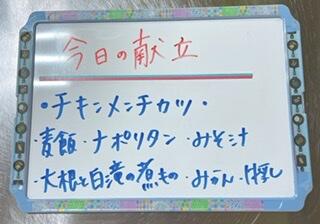 今日の献立
・チキンメンチカツ・
麦飯・ナポリタン・みそ汁
・大根と白滝の煮もの・みかん・